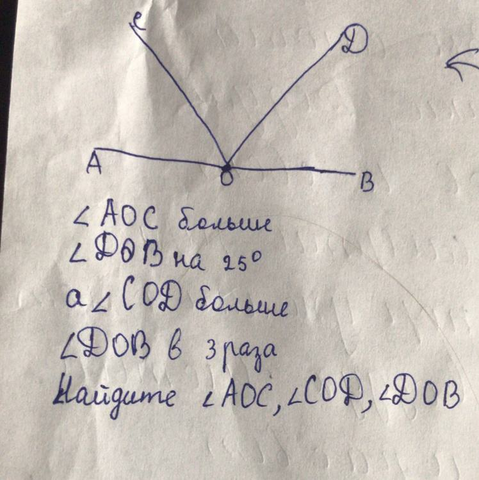 C
D
A
O
B
∠AOC больше
∠DOB на 25°
а ∠COD больше
∠DOB в 3 раза
Найдите ∠AOC, ∠COD, ∠DOB